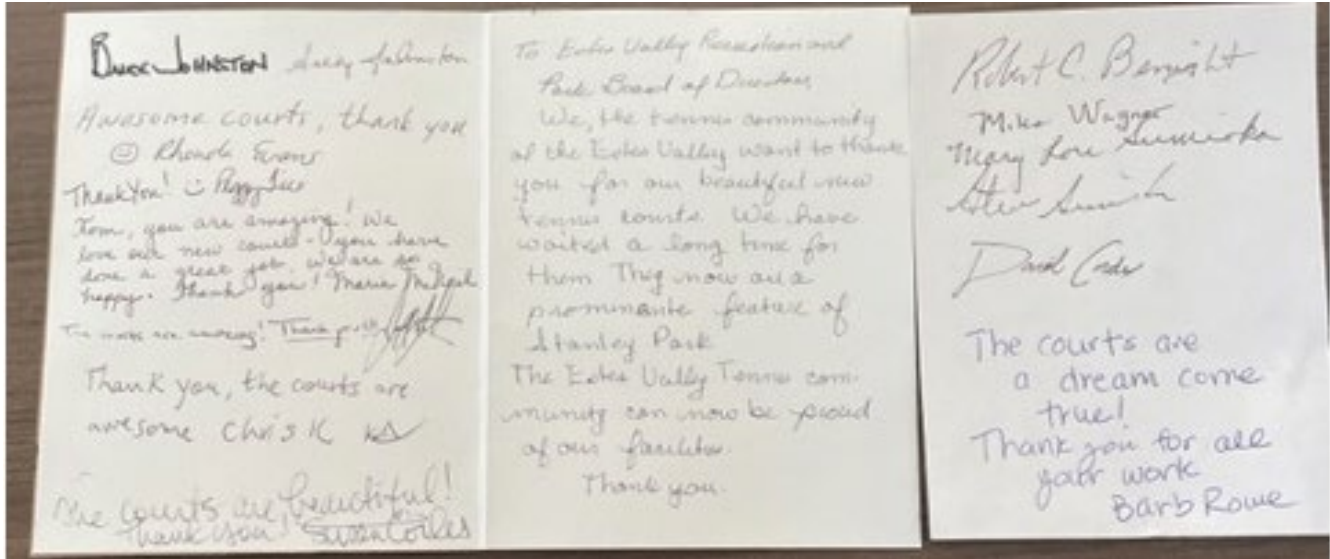 BUCK JOHNSTON Johnston
Awesome courts, thank you
☺ Rhonda Evans
Thank You! Peggy
Tom, you are amazing! We
love our new courts - you have
done a great job. We are so
happy. Thank you! Maria
The courts are amazing! Thank you!!
Thank you, the courts are
awesome Chris K
The courts are beautiful!
Thank you! Susan
To Estes Valley Recreation and
Park Board of Directors,
We, the tennis community
of the Estes Valley want to thank
you for our beautiful new
tennis courts. We have
waited a long time for
them They now are a
prominante feature of
Stanley Park
The Estes Valley Tennis com-
munity can now be proud
of our facilities.
Thank you.
Robert C. Benright
Mike Wagner
Mary Lou
Steve
David
The courts are
a dream come
true!
Thank you for all
your work
Barb Rowe